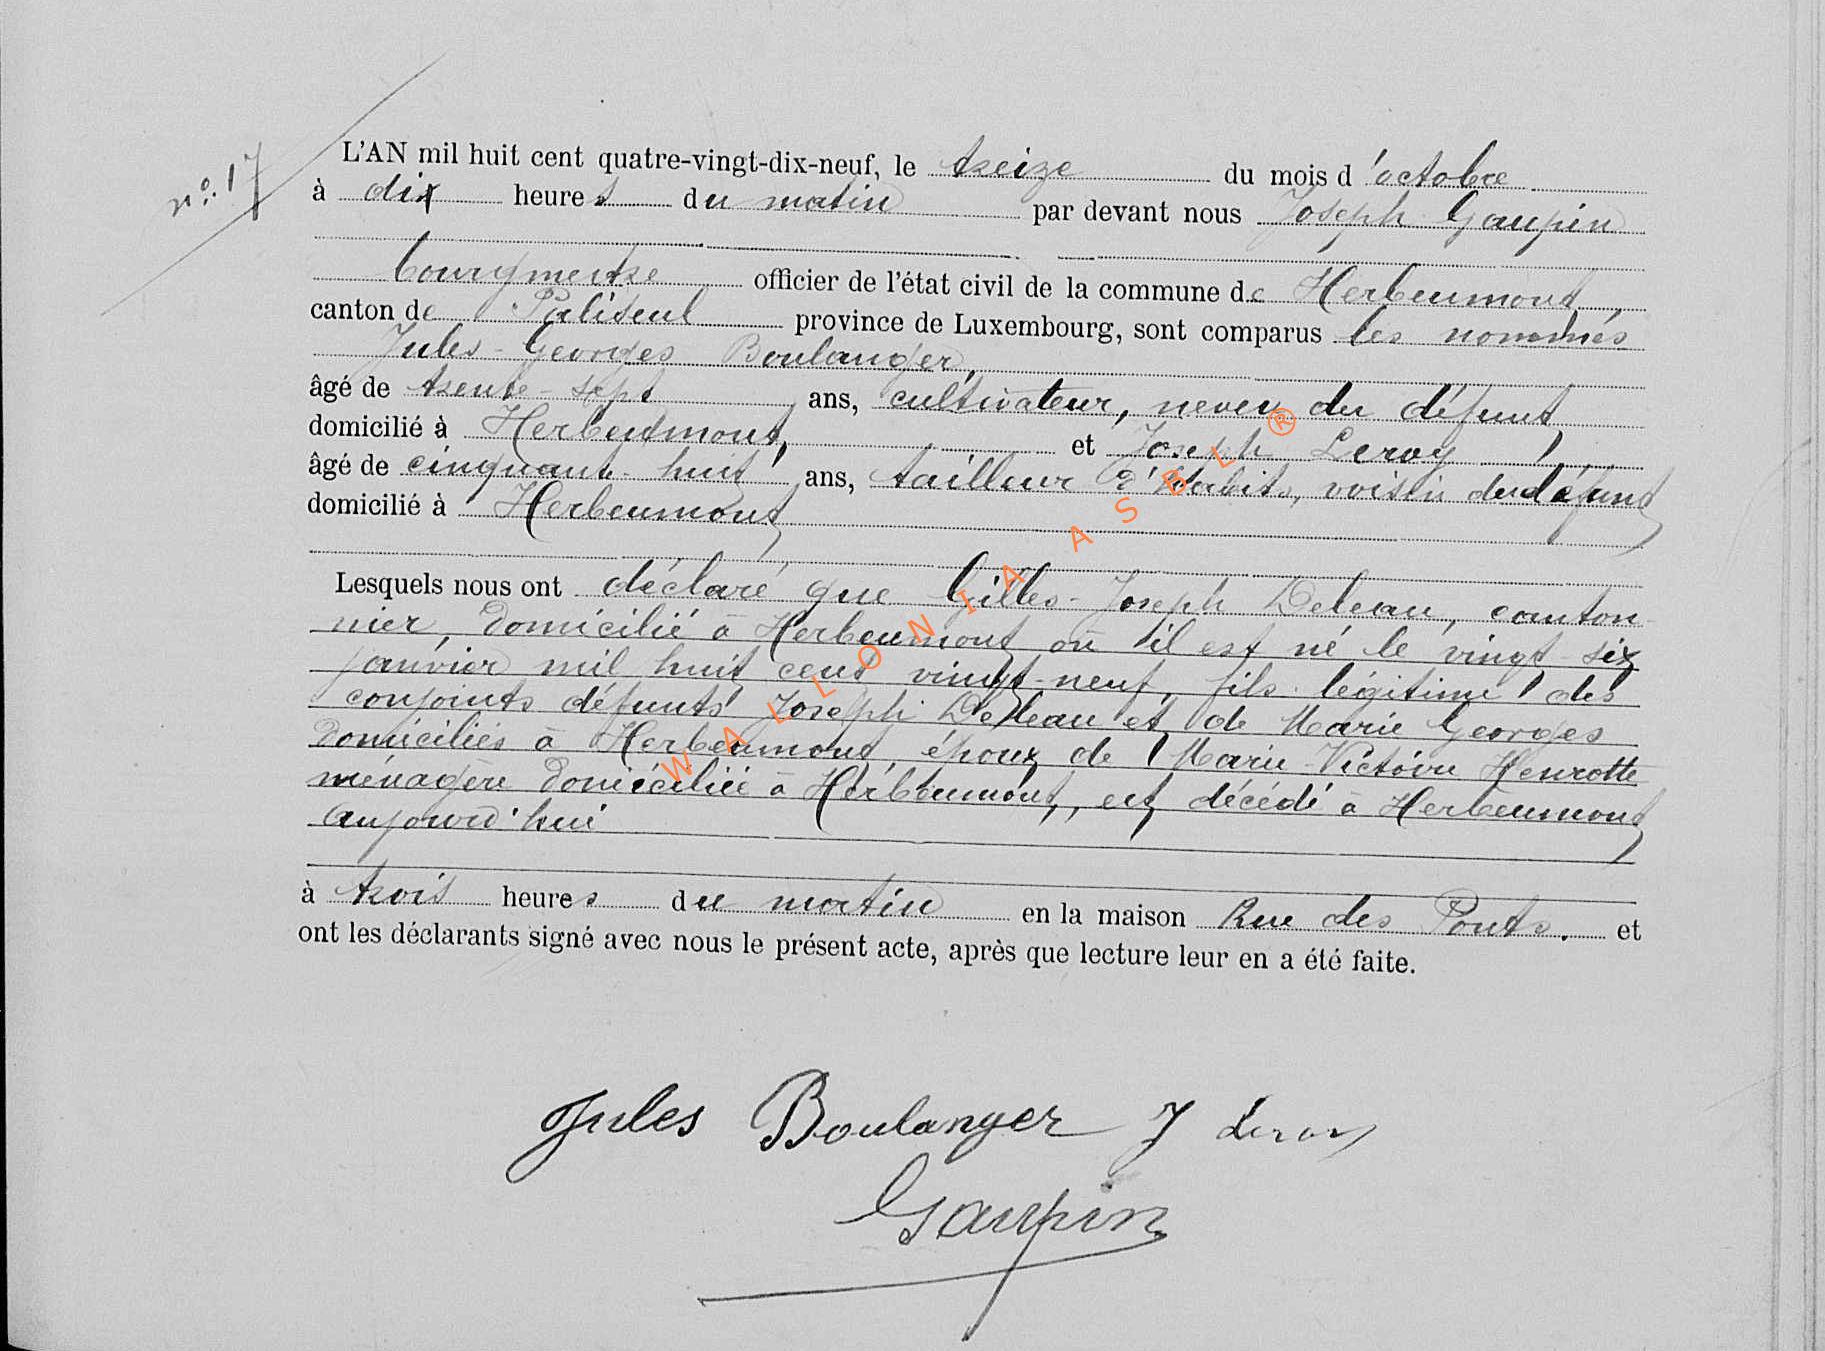 n°. 17
L'AN mil huit cent quatre-vingt-dix-neuf, le treize du mois d'octobre
à dix heures du matin par devant nous Joseph Gaupin
Bourgmestre officier de l'état civil de la commune de Herbeumont
canton de Paliseul province de Luxembourg, sont comparus les nommés
Jules-Georges Boulanger,
âgé de trente-sept ans, cultivateur, neveu du défunt,
domicilié à Herbeumont, et Joseph Leroy
âgé de cinquante-huit ans, tailleur d'habits, voisin du défunt
domicilié à Herbeumont
Lesquels nous ont déclaré que Gilles-Joseph Deleau, canton-
nier, domicilié à Herbeumont où il est né le vingt-six
janvier mil huit cent vingt-neuf, fils légitime des
conjoints défunts Joseph Deleau et de Marie Georges
domiciliés à Herbeumont, époux de Marie-Victoire Henrotte
ménagère domiciliée à Herbeumont, est décédé à Herbeumont
aujourd'hui
à trois heures du matin en la maison Rue des Ponts. et
ont les déclarants signé avec nous le présent acte, après que lecture leur en a été faite.
Jules Boulanger J Leroy
Gaupin
WALLONIA ASBL®